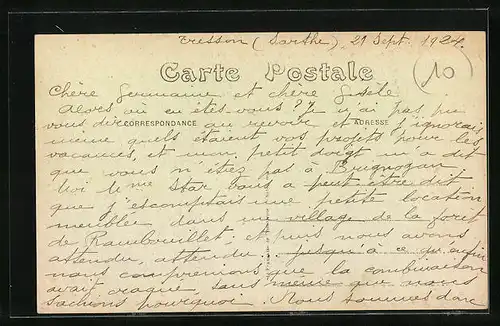 Tresson (Sarthe) 21 Sept. 1924.
Carte Postale
10
Chère Germaine et chère Gisèle
Alors où en êtes-vous? Je n'ai pas pu
vous dire au revoir et j'ignorais
CORRESPONDANCE ADRESSE
même quels étaient vos projets pour les
vacances, et mon petit doigt m'a dit
que vous n'étiez pas à Brignogan
a peut-être dit
que j'escomptais une petite location
meublée dans un village de la forêt
de Rambouillet; et puis nous avons
attendu, attendu. jusqu'à ce qu'enfin
nous comprenions que la combinaison
avait craqué sans même que nous
sachions pourquoi. Nous sommes donc